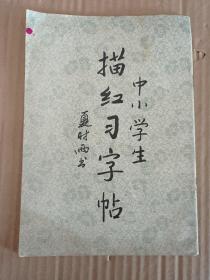 中小学生
描红习字帖
夏时雨书